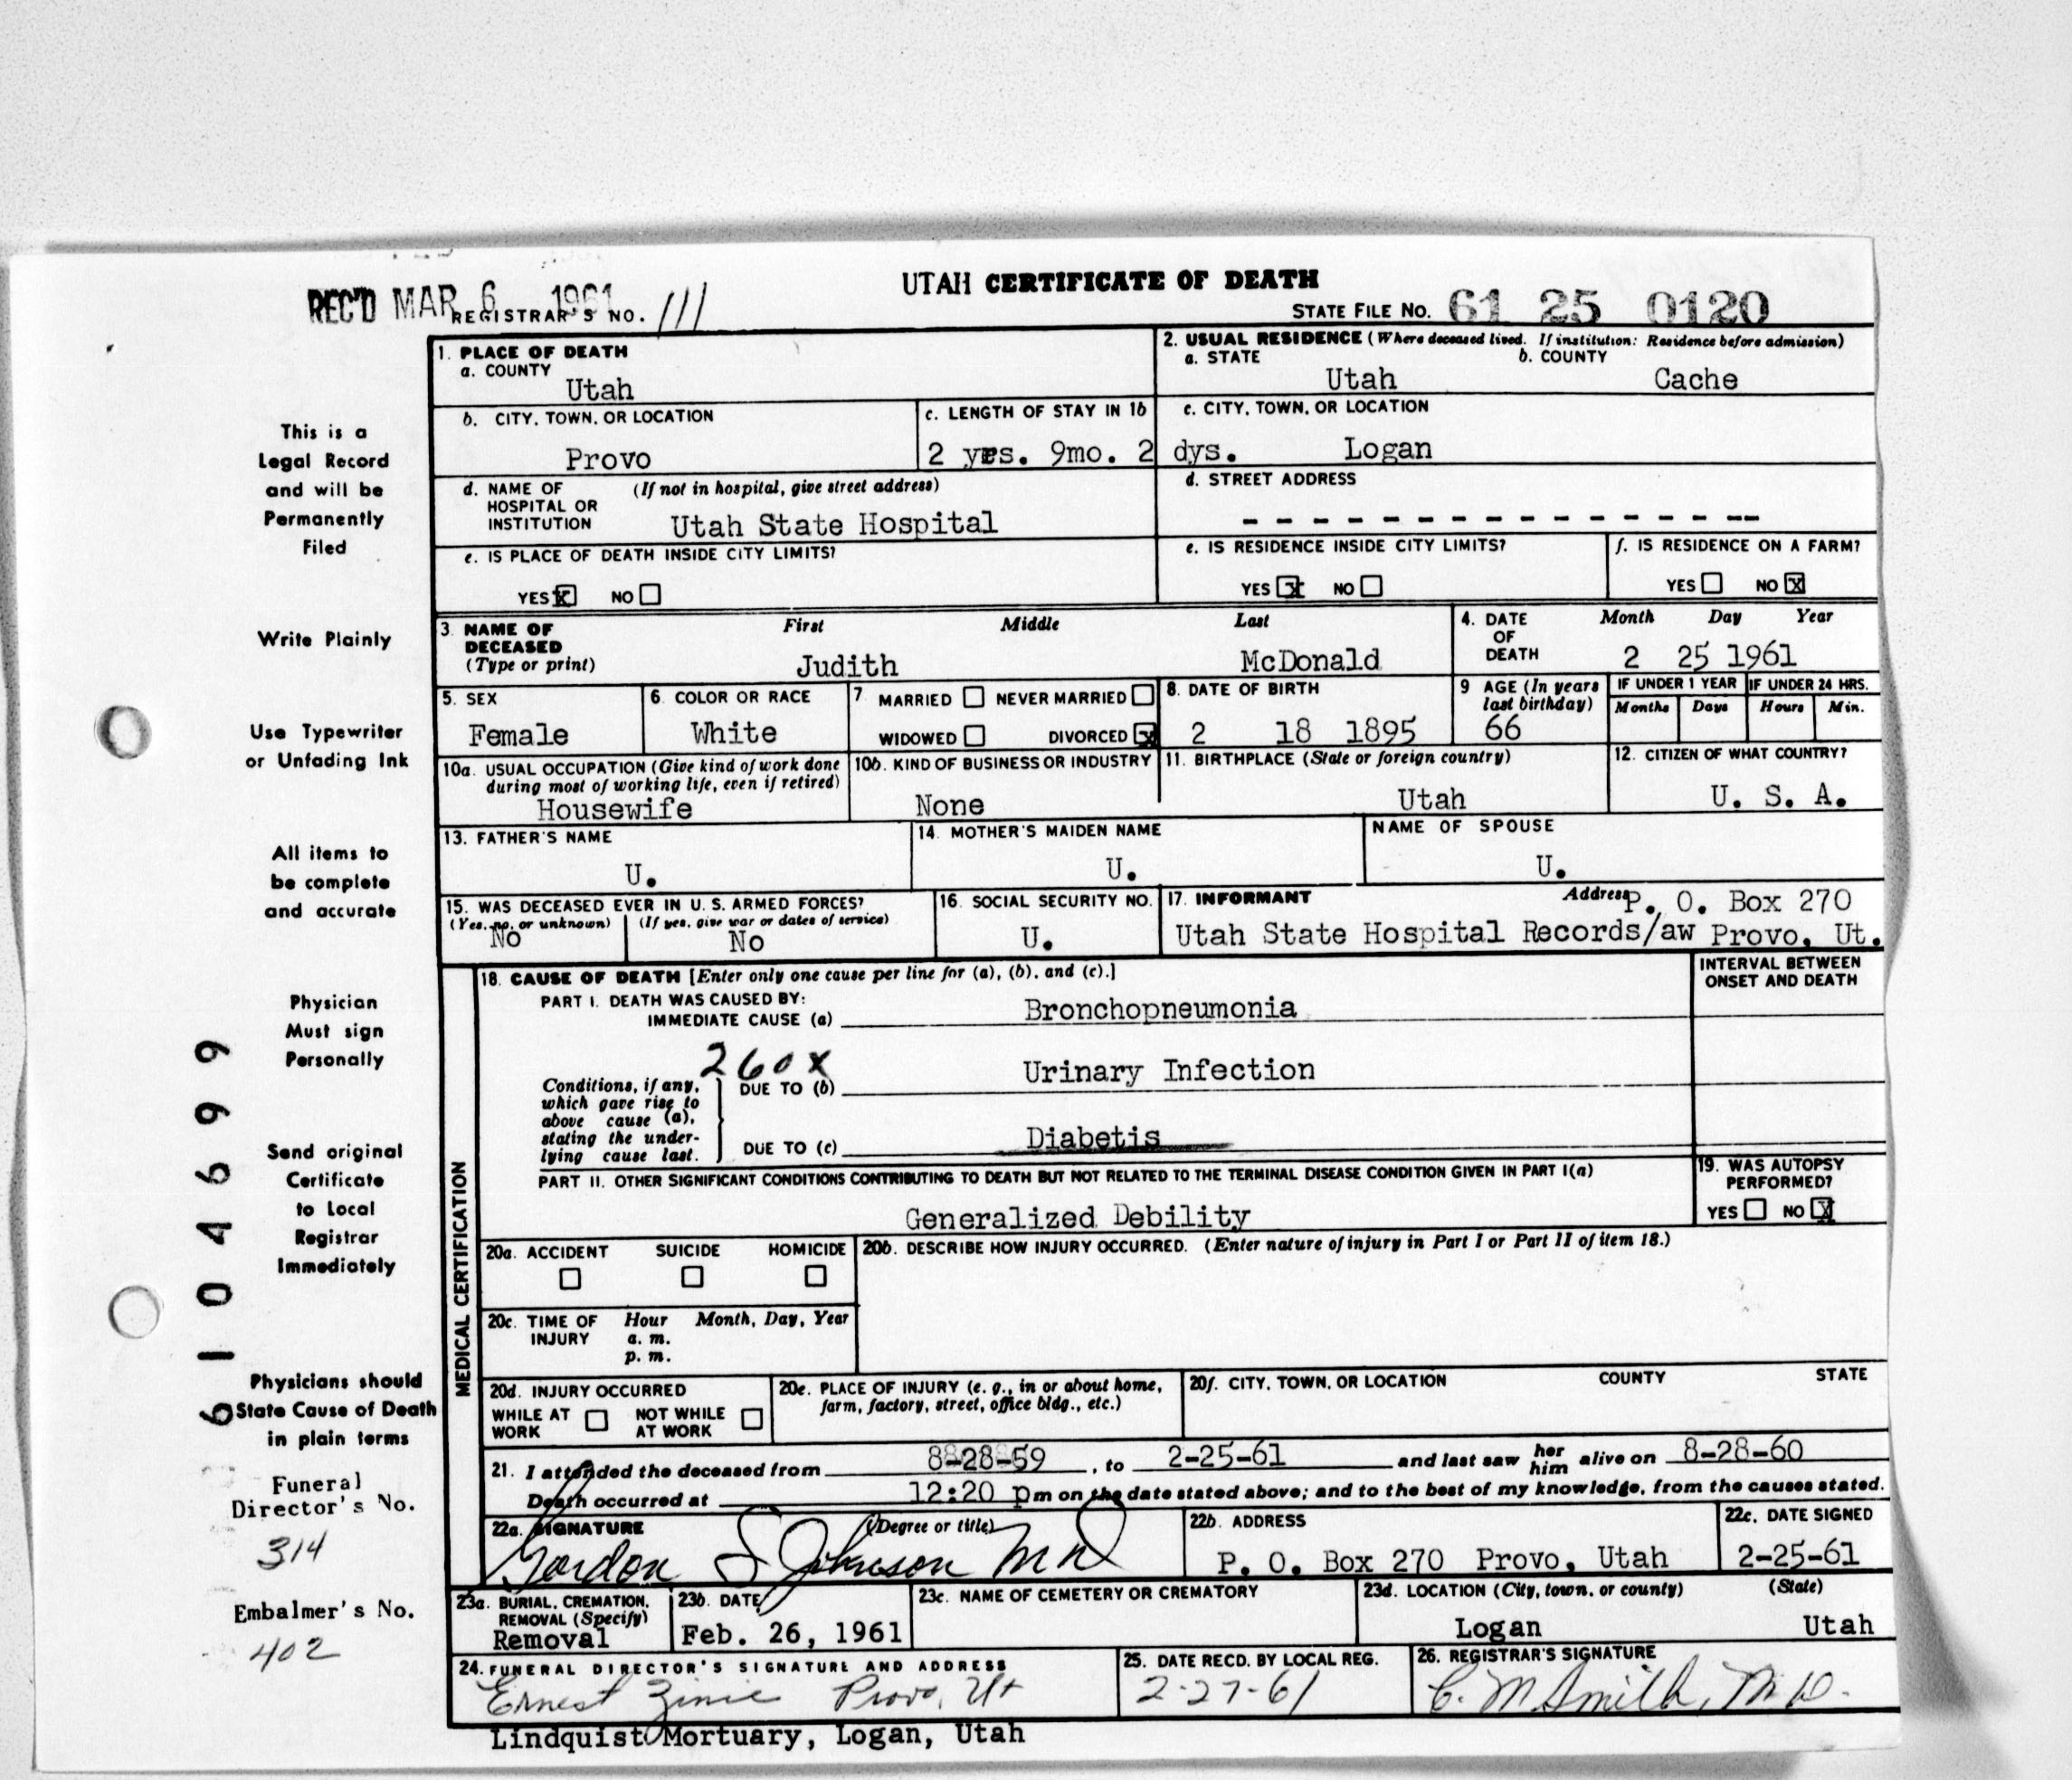 UTAH CERTIFICATE OF DEATH
REC'D MAR 6 1961 REGISTRAR'S NO. 111
STATE FILE NO. 61 25 0120
1. PLACE OF DEATH
a. COUNTY
Utah
2. USUAL RESIDENCE (Where deceased lived. If institution: Residence before admission)
a. STATE b. COUNTY
Utah Cache
b. CITY, TOWN, OR LOCATION
Provo
c. LENGTH OF STAY IN 1b
2 yrs. 9mo. 2 dys.
c. CITY, TOWN, OR LOCATION
Logan
d. NAME OF (If not in hospital, give street address)
HOSPITAL OR
INSTITUTION Utah State Hospital
d. STREET ADDRESS
- - - - - - - - - - - - - - - -
e. IS PLACE OF DEATH INSIDE CITY LIMITS?
YES X NO
e. IS RESIDENCE INSIDE CITY LIMITS?
YES X NO
f. IS RESIDENCE ON A FARM?
YES NO X
3. NAME OF First Middle Last
DECEASED
(Type or print) Judith McDonald
4. DATE Month Day Year
OF
DEATH 2 25 1961
5. SEX
Female
6. COLOR OR RACE
White
7. MARRIED NEVER MARRIED
WIDOWED DIVORCED X
8. DATE OF BIRTH
2 18 1895
9 AGE (In years
last birthday)
66
IF UNDER 1 YEAR IF UNDER 24 HRS.
Months Days Hours Min.
10a. USUAL OCCUPATION (Give kind of work done
during most of working life, even if retired)
Housewife
10b. KIND OF BUSINESS OR INDUSTRY
None
11. BIRTHPLACE (State or foreign country)
Utah
12. CITIZEN OF WHAT COUNTRY?
U. S. A.
13. FATHER'S NAME
U.
14. MOTHER'S MAIDEN NAME
U.
NAME OF SPOUSE
U.
15. WAS DECEASED EVER IN U. S. ARMED FORCES?
(Yes, no, or unknown) (If yes, give war or dates of service)
No No
16. SOCIAL SECURITY NO.
U.
17. INFORMANT Address P. O. Box 270
Utah State Hospital Records/aw Provo, Ut.
MEDICAL CERTIFICATION
18. CAUSE OF DEATH [Enter only one cause per line for (a), (b), and (c).]
INTERVAL BETWEEN
ONSET AND DEATH
PART I. DEATH WAS CAUSED BY:
IMMEDIATE CAUSE (a) Bronchopneumonia
260X
Conditions, if any,
which gave rise to
above cause (a),
stating the under-
lying cause last.
DUE TO (b) Urinary Infection
DUE TO (c) Diabetis
PART II. OTHER SIGNIFICANT CONDITIONS CONTRIBUTING TO DEATH BUT NOT RELATED TO THE TERMINAL DISEASE CONDITION GIVEN IN PART I(a)
Generalized Debility
19. WAS AUTOPSY
PERFORMED?
YES NO X
20a. ACCIDENT SUICIDE HOMICIDE
20b. DESCRIBE HOW INJURY OCCURRED. (Enter nature of injury in Part I or Part II of item 18.)
20c. TIME OF Hour Month, Day, Year
INJURY a. m.
p. m.
20d. INJURY OCCURRED
WHILE AT NOT WHILE
WORK AT WORK
20e. PLACE OF INJURY (e. g., in or about home,
farm, factory, street, office bldg., etc.)
20f. CITY, TOWN, OR LOCATION COUNTY STATE
21. I attended the deceased from 8-28-59, to 2-25-61 and last saw her him alive on 8-28-60
Death occurred at 12:20 pm on the date stated above; and to the best of my knowledge, from the causes stated.
22a. SIGNATURE (Degree or title)
Gordon S Johnson MD
22b. ADDRESS
P. O. Box 270 Provo, Utah
22c. DATE SIGNED
2-25-61
23a. BURIAL, CREMATION,
REMOVAL (Specify)
Removal
23b. DATE
Feb. 26, 1961
23c. NAME OF CEMETERY OR CREMATORY
23d. LOCATION (City, town, or county) (State)
Logan Utah
24. FUNERAL DIRECTOR'S SIGNATURE AND ADDRESS
Ernest Provo, Ut
Lindquist Mortuary, Logan, Utah
25. DATE RECD. BY LOCAL REG.
2-27-61
26. REGISTRAR'S SIGNATURE
C. M Smith, M.D.
This is a
Legal Record
and will be
Permanently
Filed
Write Plainly
Use Typewriter
or Unfading Ink
All items to
be complete
and accurate
Physician
Must sign
Personally
Send original
Certificate
to Local
Registrar
Immediately
Physicians should
State Cause of Death
in plain terms
Funeral
Director's No.
314
Embalmer's No.
402
6104699